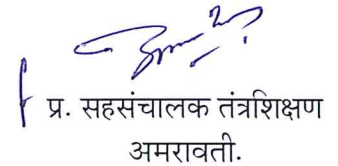 प्र. सहसंचालक तंत्रशिक्षण
अमरावती.